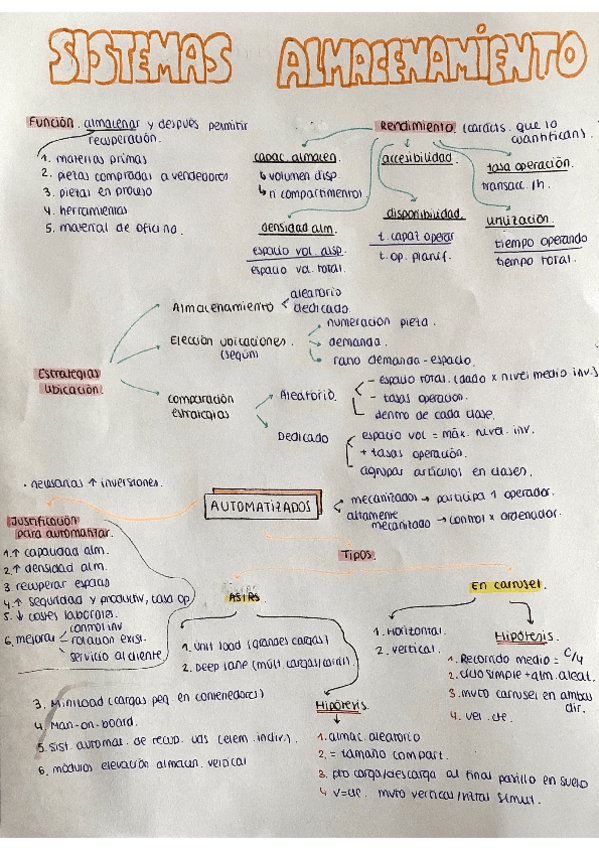 SISTEMAS ALMACENAMIENTO
Función. almacenar y después permitir
recuperación.
1. materias primas
2. piezas compradas a vendedores
3. piezas en proceso
4. herramientas
5. material de oficina.
Rendimiento. (caracts. que lo
cuantifican).
capac. almacen.
↳ volumen disp.
↳ n compartimentos)
accesibilidad.
tasa operación.
transacc. /h.
densidad alm.
espacio vol. disp.
espacio vol. total.
disponibilidad.
t. capaz operar
t. op. planif.
utilización.
tiempo operando
tiempo total.
Estrategias
ubicación.
Almacenamiento
aleatorio
dedicado.
Elección ubicaciones.
(según)
numeración pieza.
demanda.
ratio demanda - espacio.
comparación
estrategias
Aleatorio.
- espacio total. (dado x nivel medio inv.)
- tasas operación.
dentro de cada clase.
Dedicado
espacio vol = máx. nivel. inv.
+ tasas operación.
agrupar artículos en clases.
· necesarias ↑ inversiones.
AUTOMATIZADOS
mecanizados → participa 1 operador.
altamente
mecanizado → control x ordenador.
Justificación
para automatizar.
1. ↑ capacidad alm.
2. ↑ densidad alm.
3. recuperar espacio
4. ↑ seguridad y productiv, tasa op
5. ↓ costes laborales.
6. mejorar
control inv
rotación exist.
servicio al cliente
Tipos.
AS/RS
1. unit load (grandes cargas)
2. Deep lane (múlt. cargas/corto).
3. Miniload (cargas peq en contenedores)
4. Man-on-board.
5. Sist. automat. de recup. uds (elem. indiv.).
6. módulos elevación almacen. vertical
Hipótesis
1. almac. aleatorio
2. = tamaño compart.
3. pto carga/descarga al final pasillo en suelo
4 v=cte. mvto vertical/hztal simult.
En carrusel.
1. Horizontal.
2. vertical.
Hipótesis.
1. Recorrido medio = C/4
2. ciclo simple + alm. aleat.
3. mvto carrusel en ambas
dir.
4. vel. cte.